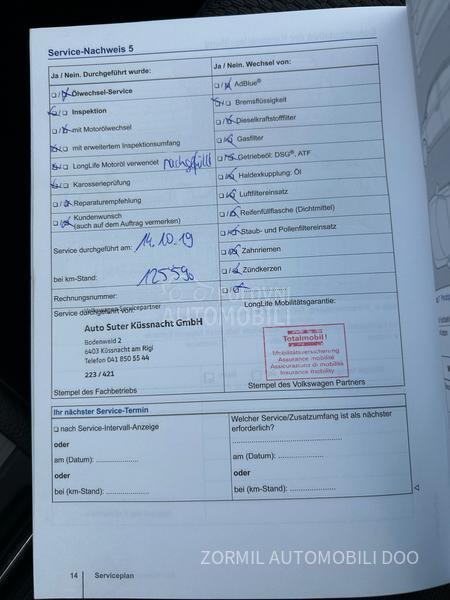 Service-Nachweis 5
Ja / Nein. Durchgeführt wurde:
❏ / ❏ Ölwechsel-Service
❏ / ❏ Inspektion
❏ / ❏ mit Motorölwechsel
❏ / ❏ mit erweitertem Inspektionsumfang
❏ / ❏ LongLife Motoröl verwendet nachgefüllt
❏ / ❏ Karosserieprüfung
❏ / ❏ Reparaturempfehlung
❏ / ❏ Kundenwunsch
(auch auf dem Auftrag vermerken)
Service durchgeführt am: 14.10.19
bei km-Stand: 125590
Rechnungsnummer:
Service durchgeführt
Volkswagen Servicepartner
Auto Suter Küssnacht GmbH
Bodenweid 2
6403 Küssnacht am Rigi
Telefon 041 850 55 44
223 / 421
Stempel des Fachbetriebs
Ja / Nein. Wechsel von:
❏ / ❏ AdBlue®
❏ / ❏ Bremsflüssigkeit
❏ / ❏ Dieselkraftstofffilter
❏ / ❏ Gasfilter
❏ / ❏ Getriebeöl: DSG®, ATF
❏ / ❏ Haldexkupplung: Öl
❏ / ❏ Luftfiltereinsatz
❏ / ❏ Reifenfüllflasche (Dichtmittel)
❏ / ❏ Staub- und Pollenfiltereinsatz
❏ / ❏ Zahnriemen
❏ / ❏ Zündkerzen
❏ / ❏
LongLife Mobilitätsgarantie:
Totalmobil!
Mobilitätsversicherung
Assurance mobilité
Assicurazione di mobilità
Insurance mobility
Stempel des Volkswagen Partners
POLOVNI AUTOMOBILI
Ihr nächster Service-Termin
❏ nach Service-Intervall-Anzeige
oder
am (Datum): ....................
oder
bei (km-Stand): ....................
Welcher Service/Zusatzumfang ist als nächster
erforderlich?
........................................
am (Datum): ....................
oder
bei (km-Stand): ....................
14 Serviceplan
ZORMIL AUTOMOBILI DOO